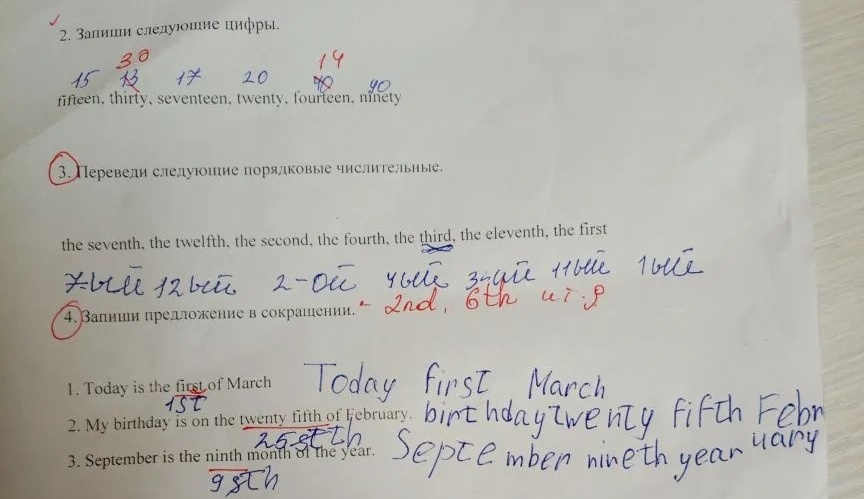 2. Запиши следующие цифры.
30 14
15 13 17 20 40 90
fifteen, thirty, seventeen, twenty, fourteen, ninety
3. Переведи следующие порядковые числительные.
the seventh, the twelfth, the second, the fourth, the third, the eleventh, the first
7-ый 12ый 2-ой 4ый 3-ий 11ый 1ый
4. Запиши предложение в сокращении. - 2nd, 6th и т.д
1. Today is the first of March Today first March
1st
2. My birthday is on the twenty fifth of February. birthday twenty fifth Febr
uary
25th
3. September is the ninth month of the year. September nineth year
9th